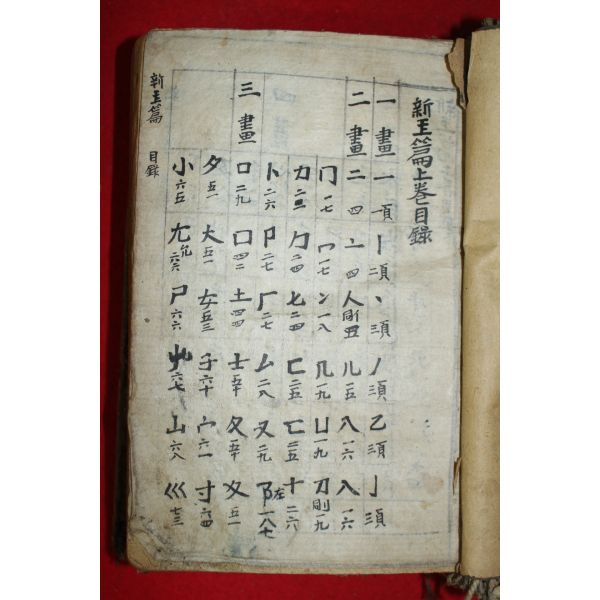 新王篇上卷目錄
一畫 一 一項 丨 二項 丶 三項 丿 三項 乙 三項 亅 三項
二畫 二 四 亠 四 人 儿 一五 八 一六 入 一六
冂 一七 冖 一七 冫 一八 几 一九 凵 一九 刀 一九
力 二三 勹 二四 匕 二四 匚 二五 匸 二五 十 二六
卜 二六 卩 二七 厂 二七 厶 二八 又 二九 阝 左 一八七
三畫 口 二九 囗 四二 土 四四 士 五十 夂 五十 夊 五一
夕 五一 大 五一 女 五三 子 六十 宀 六一 寸 六四
小 六五 尢 允 六六 尸 六六 屮 六七 山 六八 巛 七三
新王篇 目錄